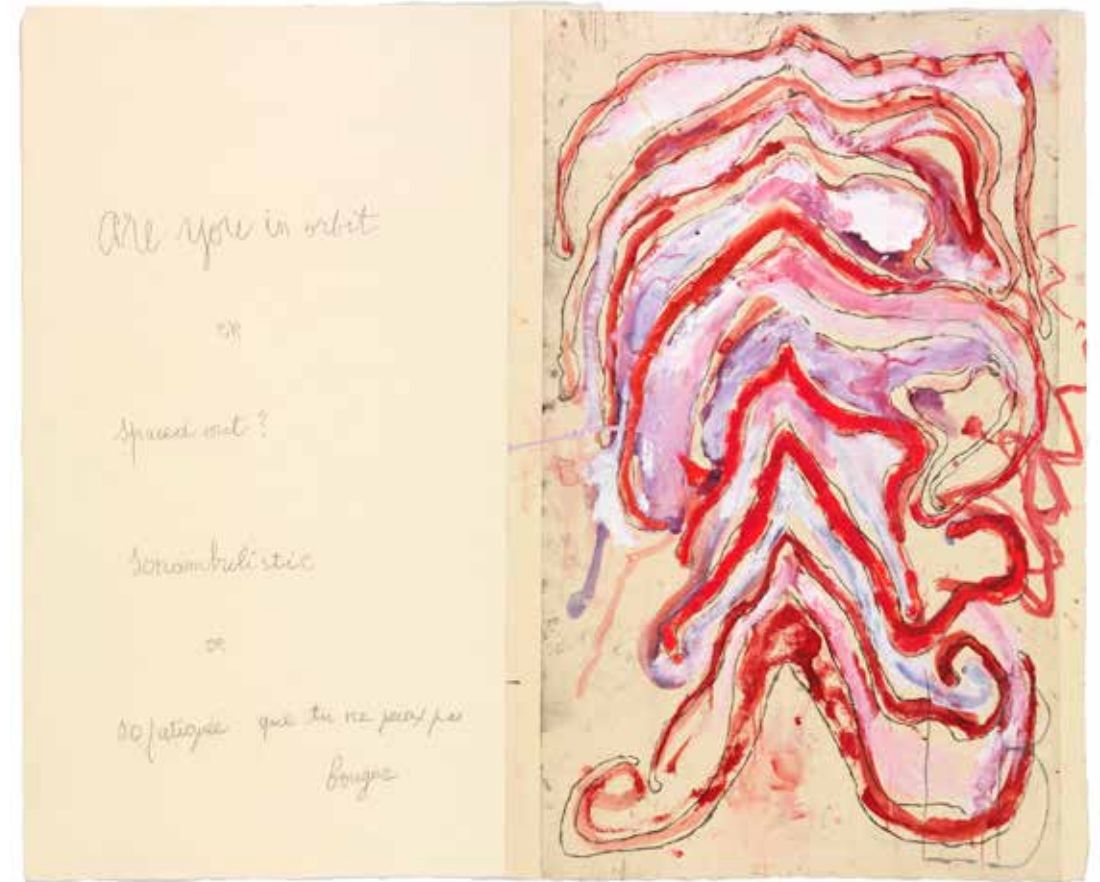 are you in orbit
OR
Spaced out?
Sonambulistic
or
so fatiguée que tu ne peux pas
bouger